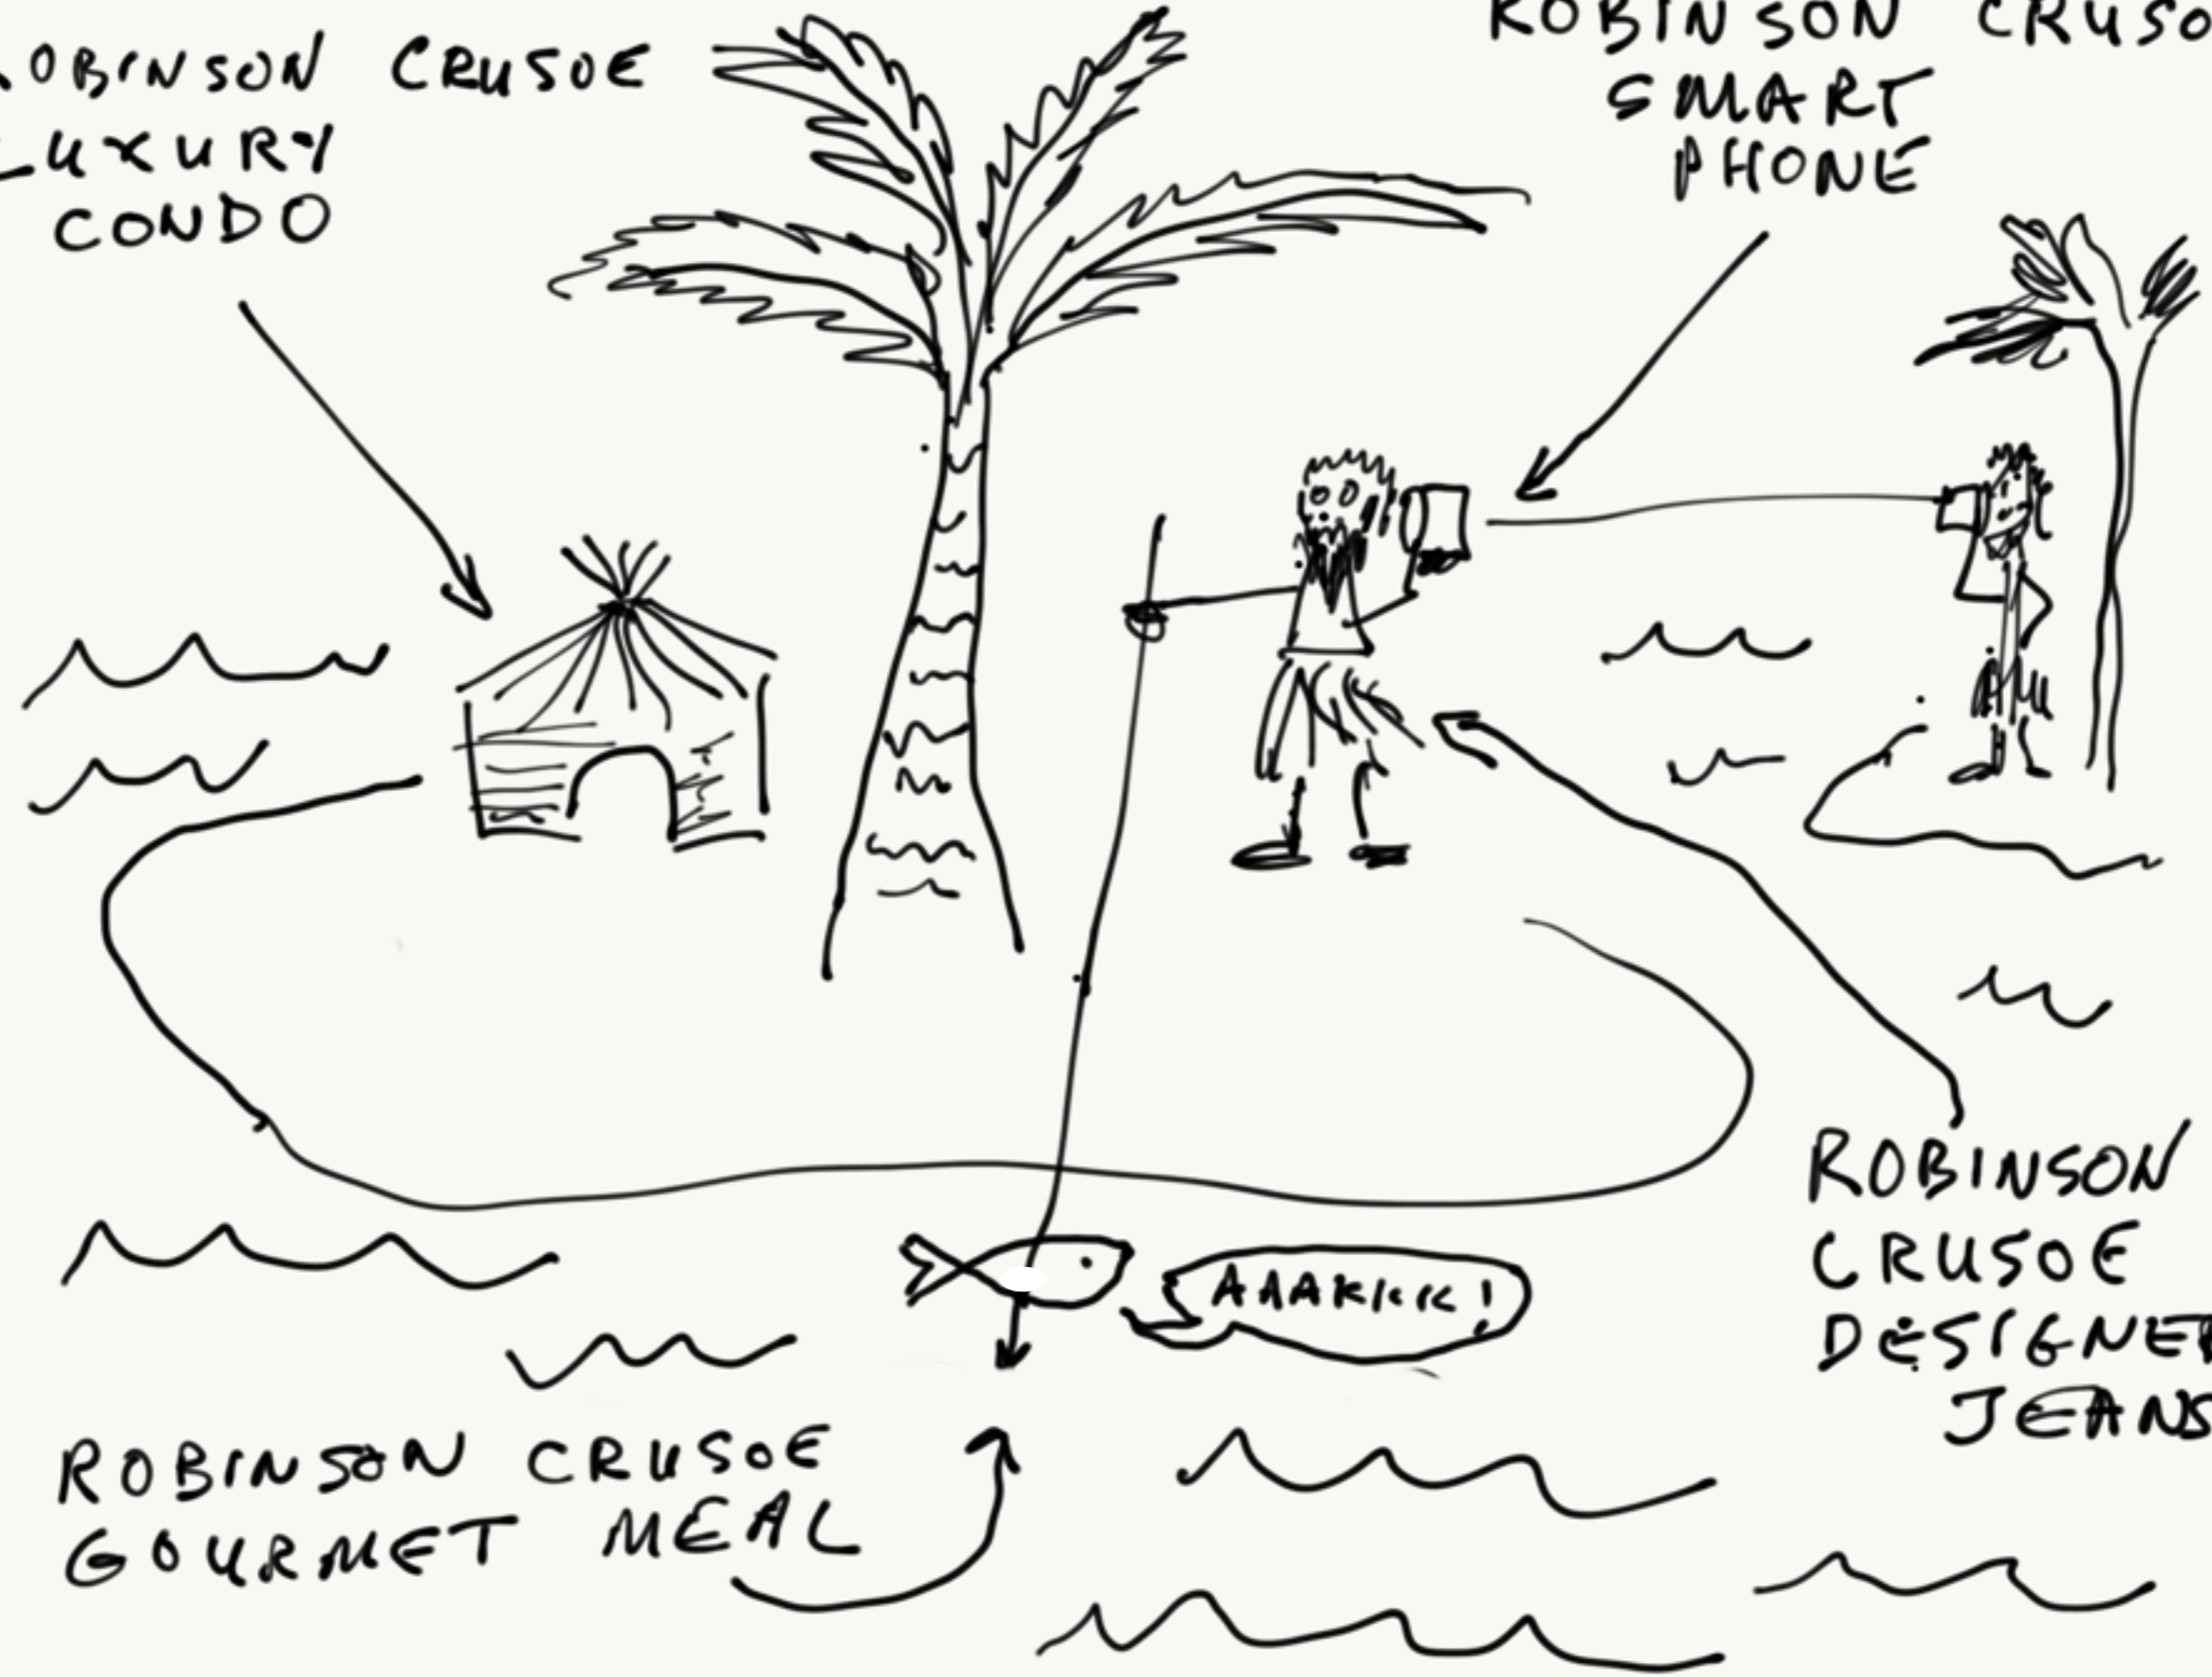 OBINSON CRUSOE
LUXURY
CONDO
ROBINSON CRUSO
SMART
PHONE
AAAKICK!
ROBINSON
CRUSOE
DESIGNER
JEANS
ROBINSON CRUSOE
GOURMET MEAL